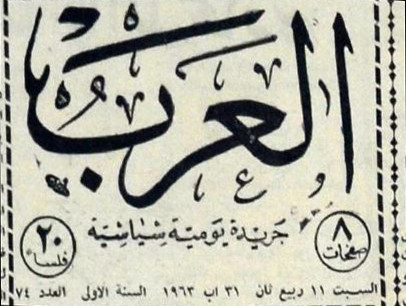 العرب
جريدة يومية سياسية
٨ صفحات
٢٠ فلسا
السبت ١١ ربيع ثان ٣١ اب ١٩٦٣ السنة الاولى العدد ٧٤